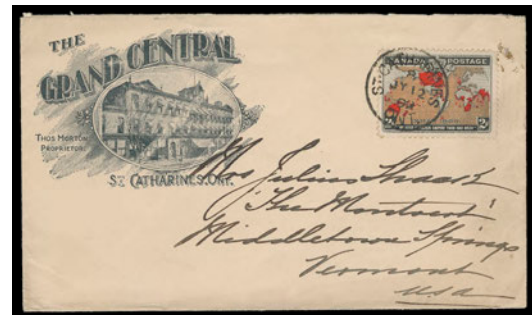 THE
GRAND CENTRAL
THOS MORTON
PROPRIETOR
ST. CATHARINES. ONT.
CANADA POSTAGE
ST. CATHARINES
JY 12
ONT.
2
Mrs Julius
"The Montvert"
Middletown Springs
Vermont
USA